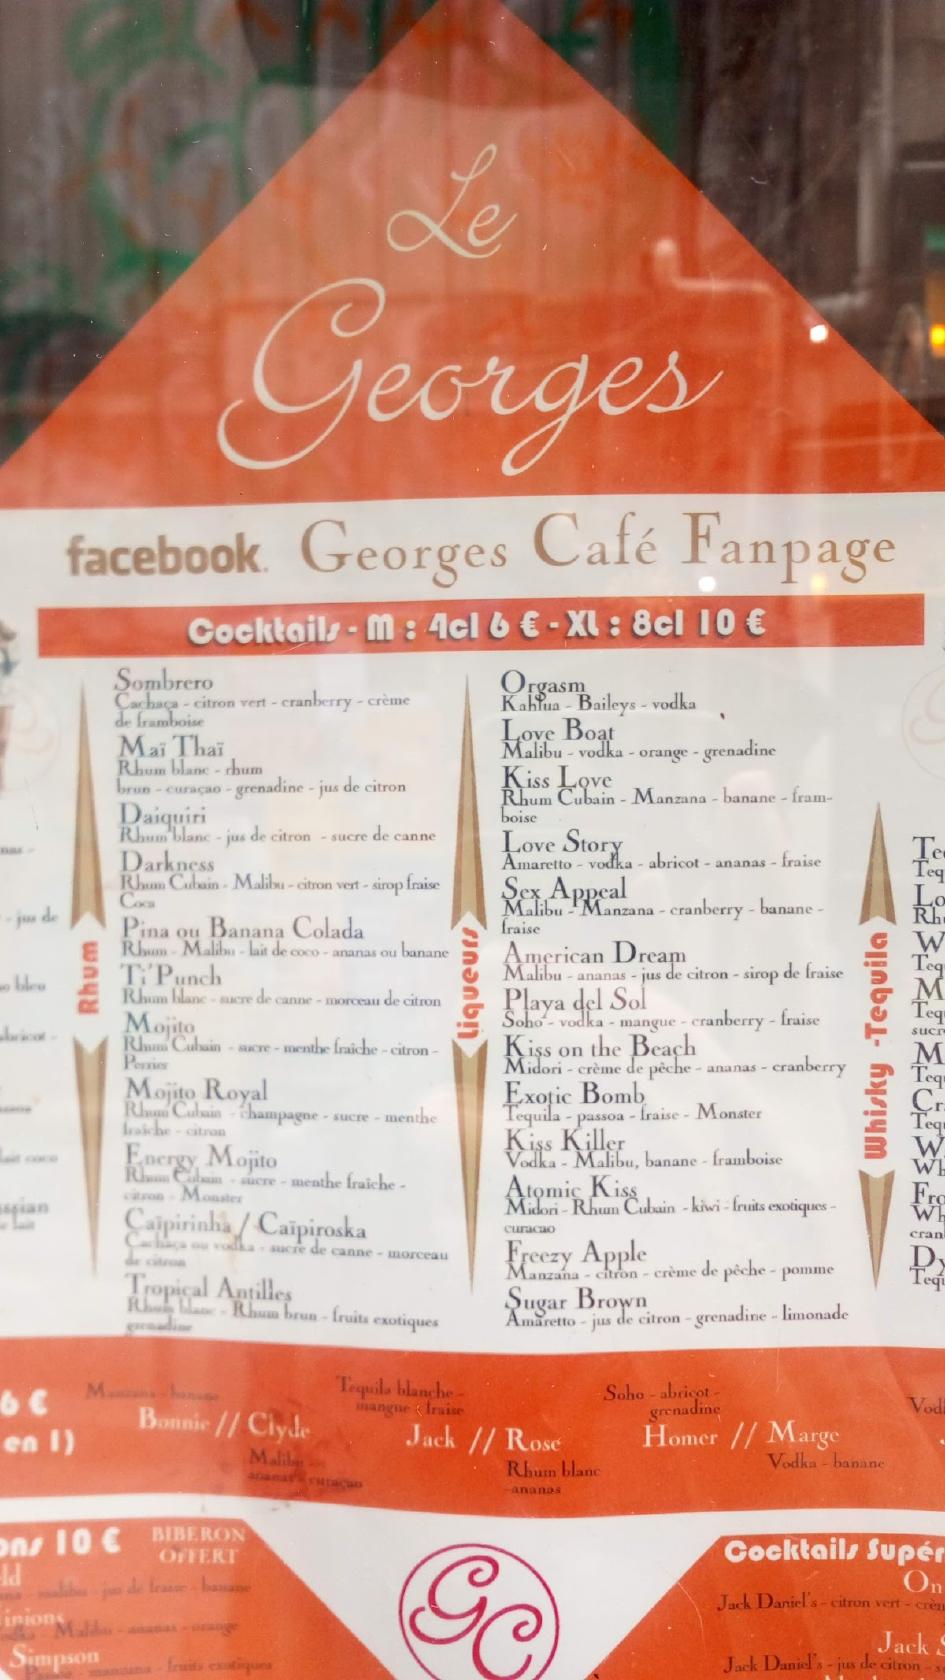 Le
Georges
facebook. Georges Café Fanpage
Cocktails - M : 4cl 6 € - XL : 8cl 10 €
Rhum
Sombrero
Cachaça - citron vert - cranberry - crème
de framboise
Maï Thaï
Rhum blanc - rhum
brun - curaçao - grenadine - jus de citron
Daiquiri
Rhum blanc - jus de citron - sucre de canne
Darkness
Rhum Cubain - Malibu - citron vert - sirop fraise
Coca
Pina ou Banana Colada
Rhum - Malibu - lait de coco - ananas ou banane
Ti'Punch
Rhum blanc - sucre de canne - morceau de citron
Mojito
Rhum Cubain - sucre - menthe fraîche - citron -
Perrier
Mojito Royal
Rhum Cubain - champagne - sucre - menthe
fraîche - citron
Energy Mojito
Rhum Cubain - sucre - menthe fraîche -
citron - Monster
Caïpirinha / Caïpiroska
Cachaça ou vodka - sucre de canne - morceau
de citron
Tropical Antilles
Rhum blanc - Rhum brun - fruits exotiques
grenadine
Liqueurs
Orgasm
Kahlua - Baileys - vodka
Love Boat
Malibu - vodka - orange - grenadine
Kiss Love
Rhum Cubain - Manzana - banane - fram-
boise
Love Story
Amaretto - vodka - abricot - ananas - fraise
Sex Appeal
Malibu - Manzana - cranberry - banane -
fraise
American Dream
Malibu - ananas - jus de citron - sirop de fraise
Playa del Sol
Soho - vodka - mangue - cranberry - fraise
Kiss on the Beach
Midori - crème de pêche - ananas - cranberry
Exotic Bomb
Tequila - passoa - fraise - Monster
Kiss Killer
Vodka - Malibu, banane - framboise
Atomic Kiss
Midori - Rhum Cubain - kiwi - fruits exotiques -
curacao
Freezy Apple
Manzana - citron - crème de pêche - pomme
Sugar Brown
Amaretto - jus de citron - grenadine - limonade
Whisky - Tequila
6 €
en 1)
Manzana - banane
Bonnie // Clyde
Malibu -
ananas - curaçao
Tequila blanche -
mangue - fraise
Jack // Rose
Rhum blanc
-ananas
Soho - abricot -
grenadine
Homer // Marge
Vodka - banane
10 € BIBERON
OFFERT
malibu - jus de fraise - banane
Malibu - ananas - orange
Simpson
manzana - fruits exotiques
GC
Cocktails Supér
On
Jack Daniel's - citron vert - crèm
Jack S
Jack Daniel's - jus de citron -